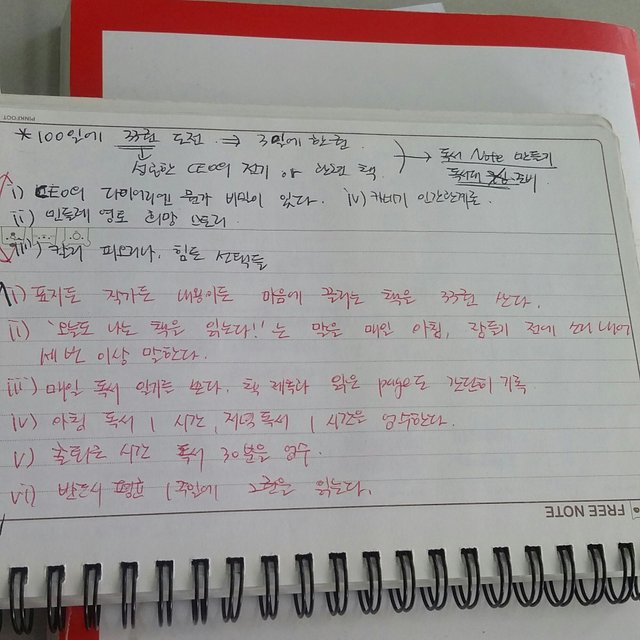 PINKFOOT
* 100일에 33권 도전 ⇒ 3일에 한권.
성공한 CEO의 전기 or 관련 책
→ 독서 Note 만들기
독서대 준비
i) CEO의 다이어리엔 뭔가 비밀이 있다. iv) 카네기 인간관계론.
ii) 민들레 영토 희망 스토리.
iii) 칼리 피오리나, 힘든 선택들
i) 표지든 작가든 내용이든 마음에 끌리는 책을 33권 산다.
ii) '오늘도 나는 책을 읽는다!!'는 말을 매일 아침, 잠들기 전에 소리내어
세 번 이상 말한다.
iii) 매일 독서 일기를 쓴다. 책 제목과 읽은 page도 간단히 기록
iv) 아침 독서 1시간, 저녁 독서 1시간은 엄수한다.
v) 출퇴근 시간 독서 30분을 엄수.
vi) 반드시 평균 1주일에 2권을 읽는다.
FREE NOTE